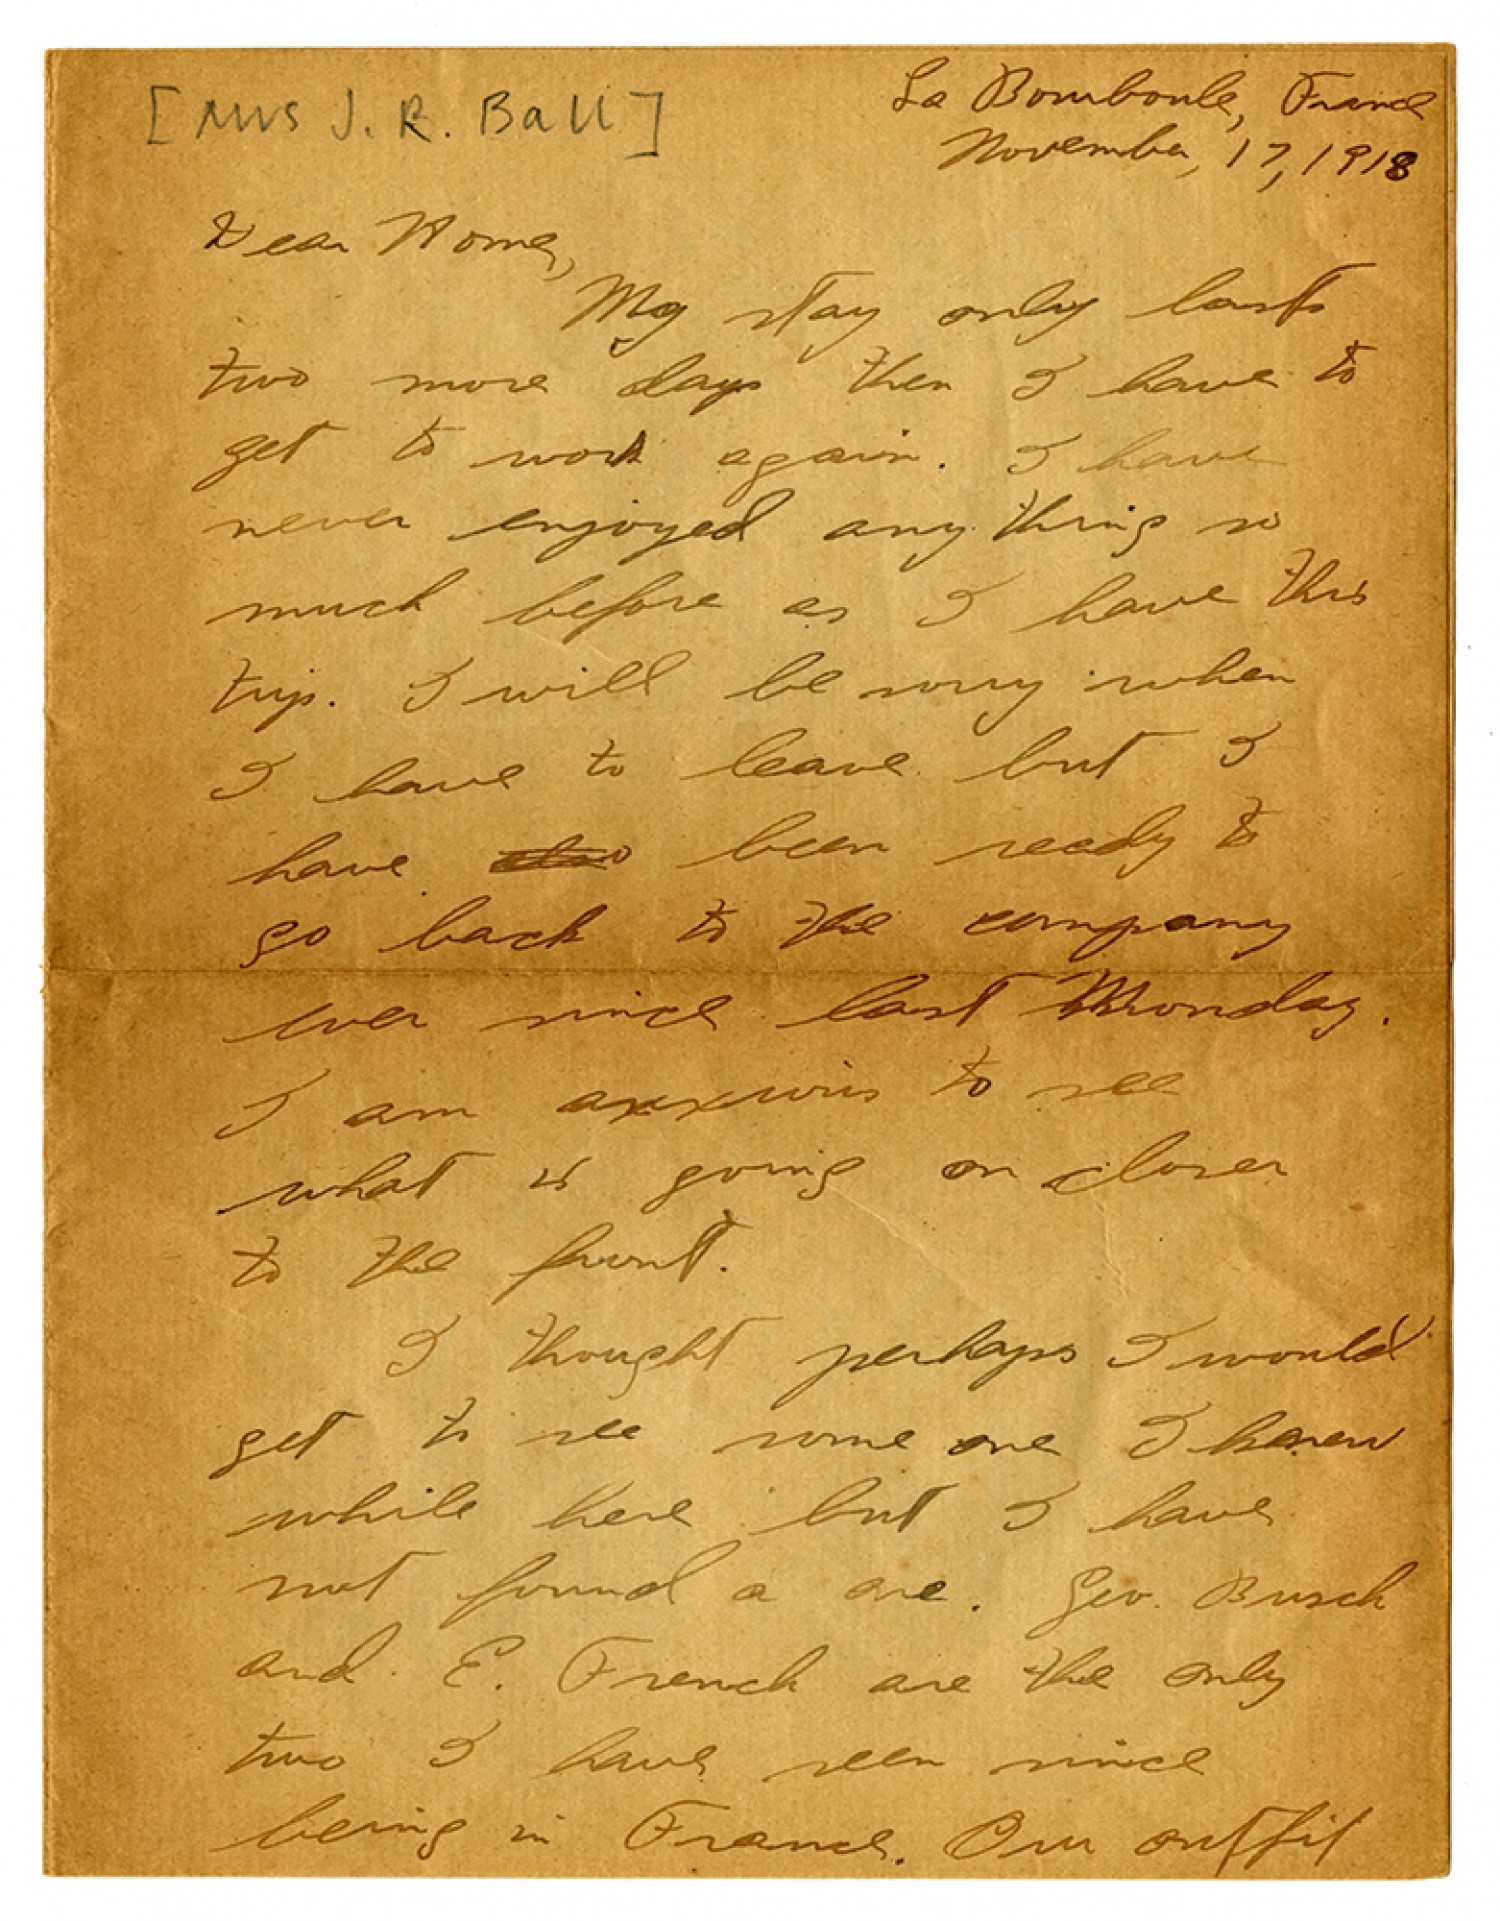 [Mrs J. R. Ball]
La Bourboule, France
November, 17, 1918
Dear Home,
My stay only lasts
two more days then I have to
get to work again. I have
never enjoyed anything so
much before as I have this
trip. I will be sorry when
I have to leave but I
have been ready to
go back to the company
ever since last Monday.
I am anxxious to see
what is going on closer
to the front.
I thought perhaps I would
get to see some one I knew
while here but I have
not found a one. Geo. Busch
and E. French are the only
two I have seen since
being in France. Our outfit